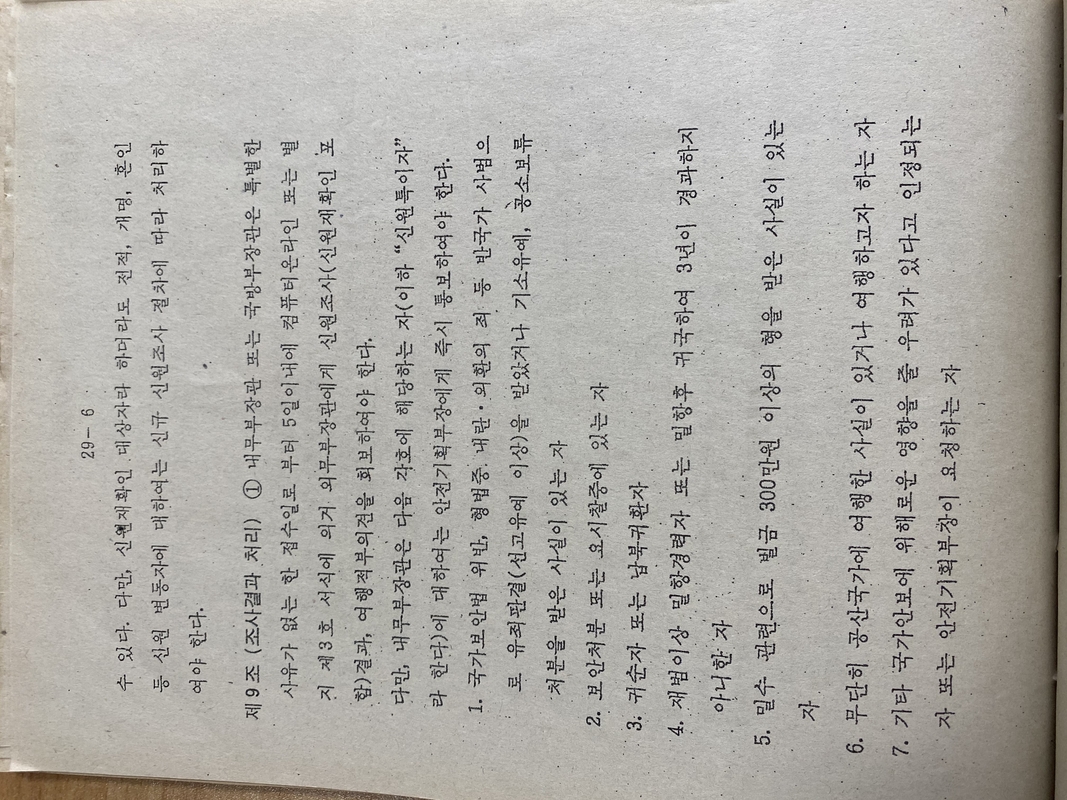 29- 6
수 있다. 다만, 신원재확인 대상자라 하더라도 전적, 개명, 혼인
등 신원 변동자에 대하여는 신규 신원조사 절차에 따라 처리하
여야 한다.
제 9 조 (조사결과 처리) ① 내무부장관 또는 국방부장관은 특별한
사유가 없는 한 접수일로 부터 5일이내에 컴퓨터온라인 또는 별
지 제3호 서식에 의거 외무부장관에게 신원조사(신원재확인 포
함)결과, 여행적부의견을 회보하여야 한다.
다만, 내무부장관은 다음 각호에 해당하는 자(이하 “신원특이자”
라 한다)에 대하여는 안전기획부장에게 즉시 통보하여야 한다.
1. 국가보안법 위반, 형법중 내란·외환의 죄 등 반국가 사범으
로 유죄판결(선고유예 이상)을 받았거나 기소유예, 공소보류
처분을 받은 사실이 있는 자
2. 보안처분 또는 요시찰중에 있는 자
3. 귀순자 또는 납북귀환자
4. 재범이상 밀항경력자 또는 밀항후 귀국하여 3년이 경과하지
아니한 자
5. 밀수 관련으로 벌금 300만원 이상의 형을 받은 사실이 있는
자
6. 무단히 공산국가에 여행한 사실이 있거나 여행하고자 하는 자
7. 기타 국가안보에 위해로운 영향을 줄 우려가 있다고 인정되는
자 또는 안전기획부장이 요청하는 자